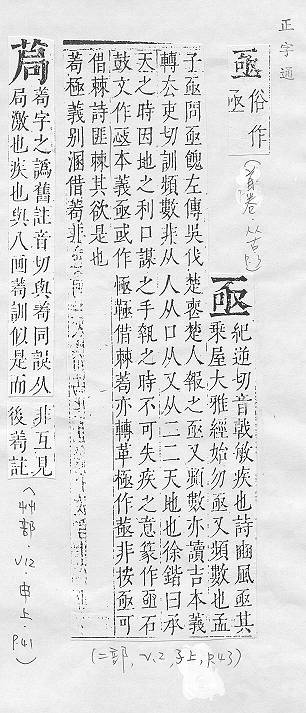 正字通
亟 俗作亟
亟 紀逆切音戟敏疾也詩豳風亟其
乘屋大雅經始勿亟又頻數也孟
子亟問亟餽左傳吳伐楚喪楚人報之亟又頻數亦讀吉本義
轉去吏切訓頻數非从人从口从又从二二天地也徐鍇曰承
天之時因地之利口謀之手執之時不可失疾之意篆作亟石
鼓文作本義亟或作極借棘亦轉革極作非按亟可
借棘詩匪棘其欲是也
極義別溷借非
(二部, V.2, 子上, P.43)
字之譌舊註音切與同誤从
局激也疾也與八画訓似是而
非互見
後註
(艸部.V12.申上.P.41)